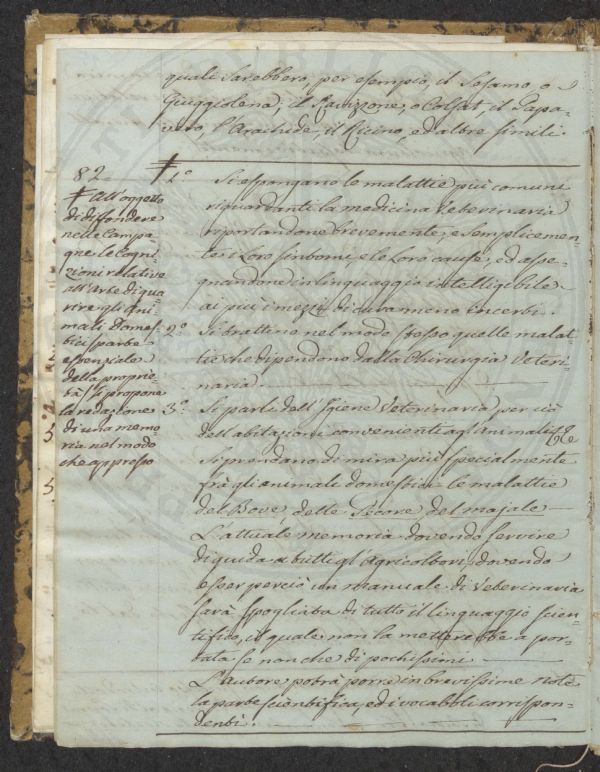 quali sarebbero, per esempio, il Sesamo, o
Giuggiolena, il Ravizzone, o Colsat, il Papa-
vero, l'Arachide, il Ricino, ed altre simili.
82
All'oggetto
di difondere
nelle Campa-
gne le Cogni-
zioni relative
all'Arte di gua-
rire gli Ani-
mali Domes-
tici parte
essenziale
della proprie-
tà si propone
la redazione
di una memo-
ria nel modo
che appresso
1.° Si espongano le malattie più comuni
riguardanti la medicina Veterinaria
riportandone brevemente, e semplicemen-
te i Loro sintomi, e le Loro cause, ed asse-
gnandone in linguaggio intelligibile
ai più i mezzi di cura meno incerti.
2.° Si trattino nel modo stesso quelle malat-
tie che dipendono dalla Chirurgia Veteri-
naria
3.° Si parli dell'Igiene Veterinaria per ciò
dell'abitazioni convenienti agl'animali &c
Si prendano di mira più specialmente
frà gli animali domestici le malattie
del Bove, delle Pecore, del majale
L'attuale memoria dovendo servire
di guida a tutti gl'Agricoltori, dovendo
esser perciò un manuale di Veterinaria
sarà spogliata di tutto il linguaggio scien-
tifico, il quale non la metterebbe a por-
tata se non che di pochissimi
L'autore potrà porre in brevissime note
la parte scientifica, ed i vocaboli corrispon-
denti.